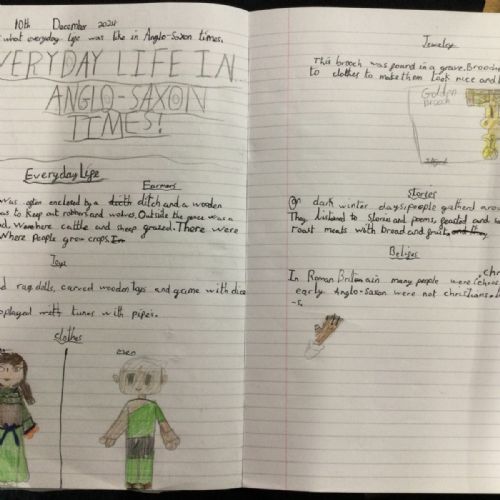 10th December 2024
what everyday life was like in Anglo-Saxon times.
VERYDAY LIFE IN
ANGLO-SAXON
TIMES!
Everyday Life
Earmers
was often enclosed by a ditch and a wooden
as to keep out robbers and wolves. Outside the fence was a
d, where cattle and sheep grazed. There were
where people grow crops.
Toys
d rag dolls, carved wooden toys and game with dice
played tunes with pipes.
Clothes
men
Jewelry
This brooch was found in a grave. Brooch
to clothes to make them look nice and
Golden
Brooch
Stories
On dark winter days, people gathered aroun
They listened to stories and poems, feasted and
roast meats with bread and fruit,
Beliefs
chr
In Roman Britmain many people were chris
early Anglo-Saxon were not christians.